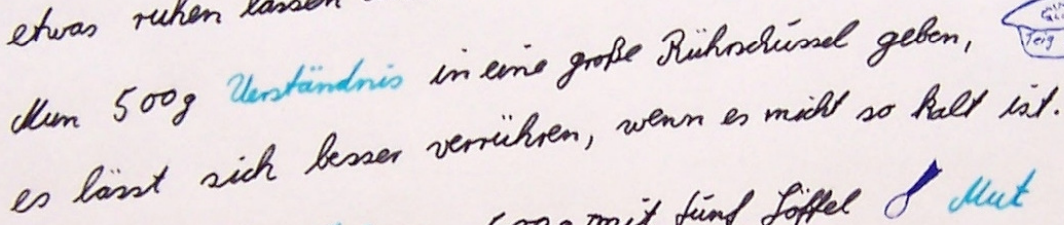 etwas ruhen lassen
Nun 500g Verständnis in eine große Rührschüssel geben,
Teig
es lässt sich besser verrühren, wenn es nicht so kalt ist.
mit fünf Löffel Mut